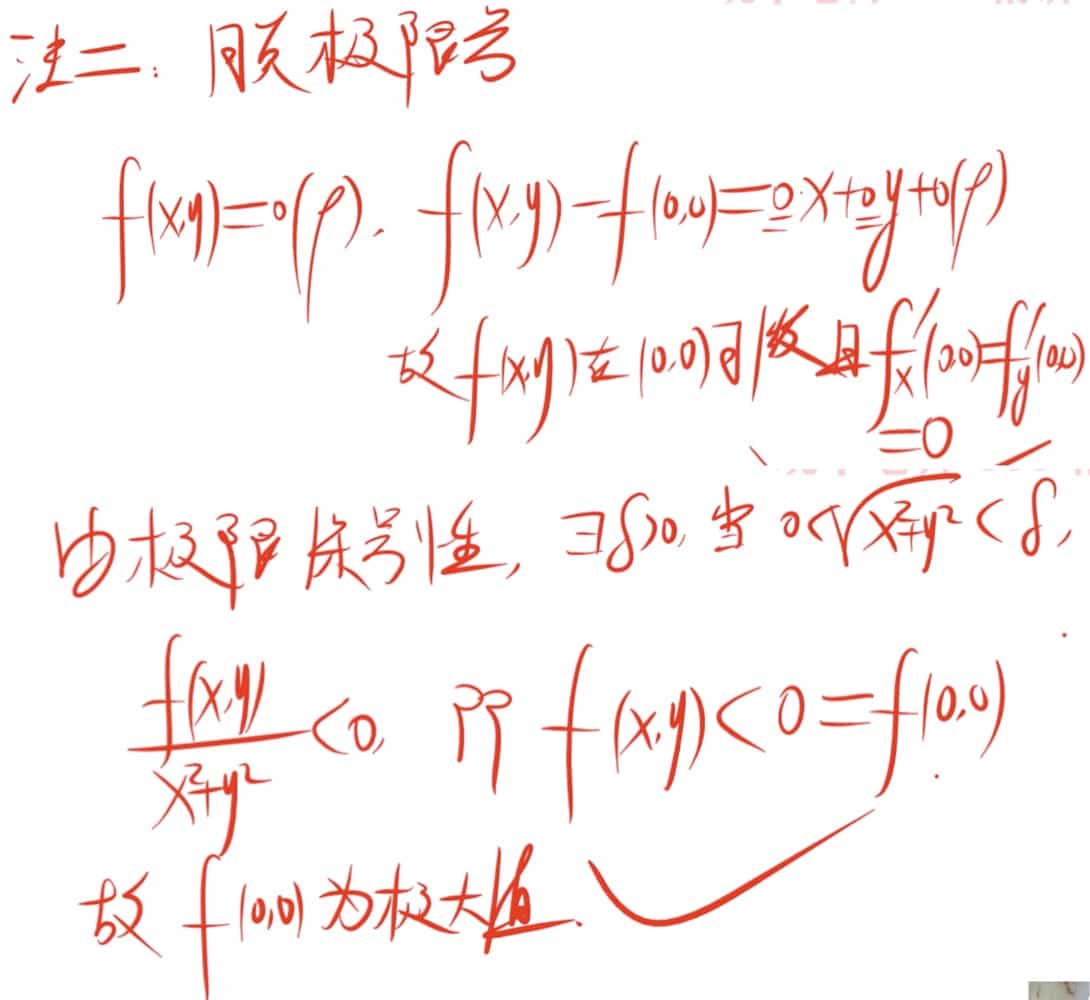 注二：脱极限号
f(x,y)=o(ρ). f(x,y)-f(0,0)=0·x+0y+o(ρ)
故f(x,y)在(0,0)可微且f'x(0,0)=f'y(0,0)
=0
由极限保号性, ∃δ>0, 当 0<√(x²+y²)<δ,
f(x,y)/(x²+y²)<0, 即 f(x,y)<0=f(0,0)
故 f(0,0)为极大值.